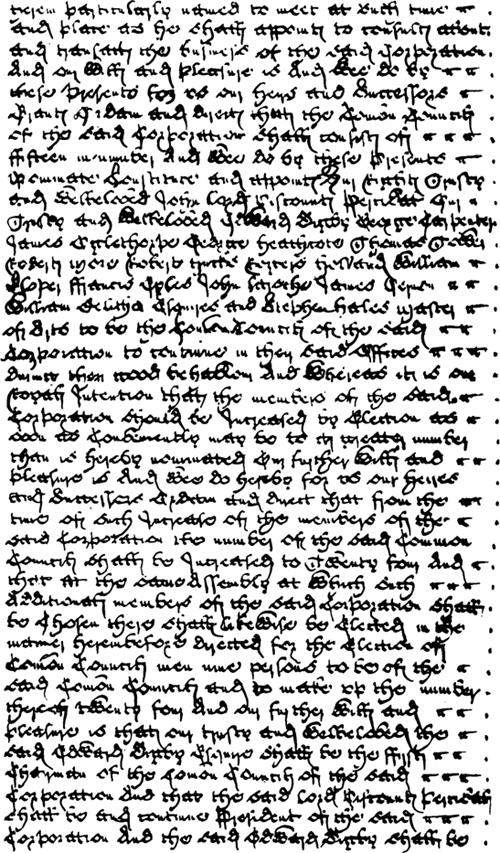 therein particularly named to meet at such time
and place as he shall appoint to consult about
and transact the business of the said Corporation
And our Will and pleasure is And Wee do by
these Presents for us our heirs and Successors
Grant Ordain and direct that the Comon Council
of the said Corporation shall consist of
fifteen in number And Wee do by these presents
Nominate Constitute and appoint Our Right Trusty
and Welbeloved John Lord Viscount Percival Our
Trusty and Welbeloved Edward Digby George Carpenter
James Oglethorpe George Heathcote Thomas Tower
Robert More Robert Hucks Rogers Holland William
Sloper ffrancis Eyles John Laroche James Vernon
William Beletha Esquires and Stephen Hales Master
of Arts to be the Comon Council of the said
Corporation to continue in their said Offices
during their good behaviour And Whereas it is our
royall Intention that the members of the said
Corporation should be Increased by Election as
soon as Conveniently may be to a greater number
than is hereby nominated Our further Will and
pleasure is And Wee do hereby for us our Heires
and Successors Ordain and direct that from the
time of such Increase of the members of the
said Corporation the number of the said Common
Council shall be Increased to Twenty four And
that at the same Assembly at Which such
Additionall members of the said Corporation shall
be Chosen there shall likewise be Elected in the
manner hereinbefore directed for the Election of
Comon Council men nine persons to be of the
said Comon Council and to make up the number
thereof twenty four And our further Will and
pleasure is that our trusty and Welbeloved the
said Edward Digby Esquire shall be the ffirst
Chairman of the Comon Council of the said
Corporation And that the said Lord Viscount Percival
shall be and continue President of the said
Corporation And the said Edward Digby shall be